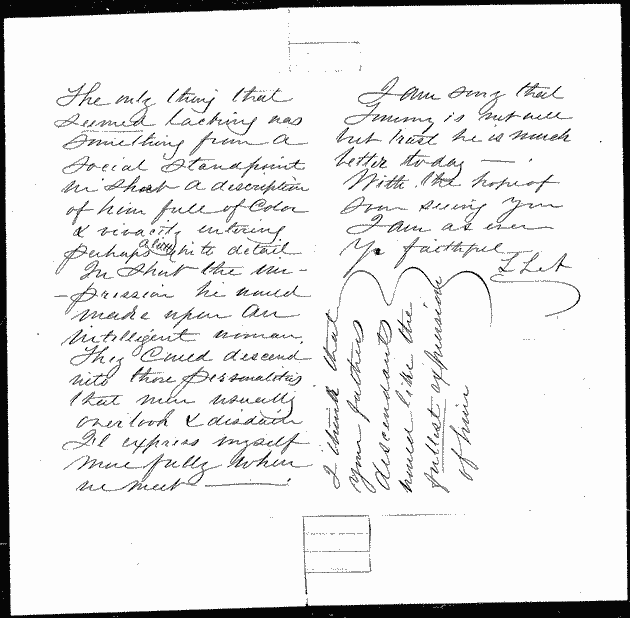 The only thing that
seemed lacking was
something from a
social standpoint
in short a description
of him full of Color
& vivacity entering
perhaps a little into detail
In Short the im-
-pression he would
make upon an
intelligent woman.
They Could descend
into those personalities
that men usually
overlook & disdain
I'll express myself
more fully when
we meet —.
I am sorry that
Tommy is not well
but trust he is much
better to day —.
With the hope of
soon seeing you
I am as ever
Yr faithful
I think that
your fathers
descendants
would like the
fullest expression
of him